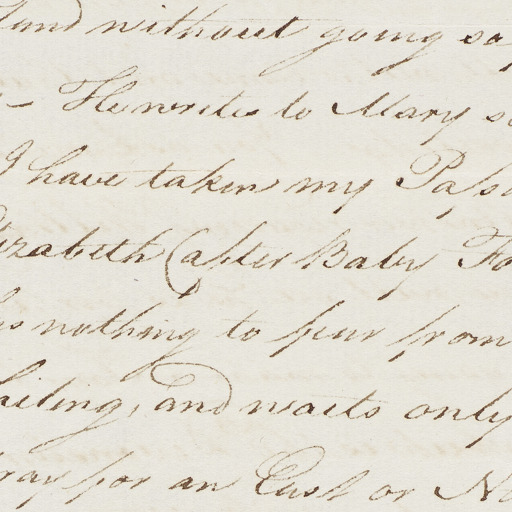 and without going so
– He writes to Mary s
I have taken my Pass
lizabeth (after Baby Fo
is nothing to fear from
ailing, and waits only
ray for an East or No